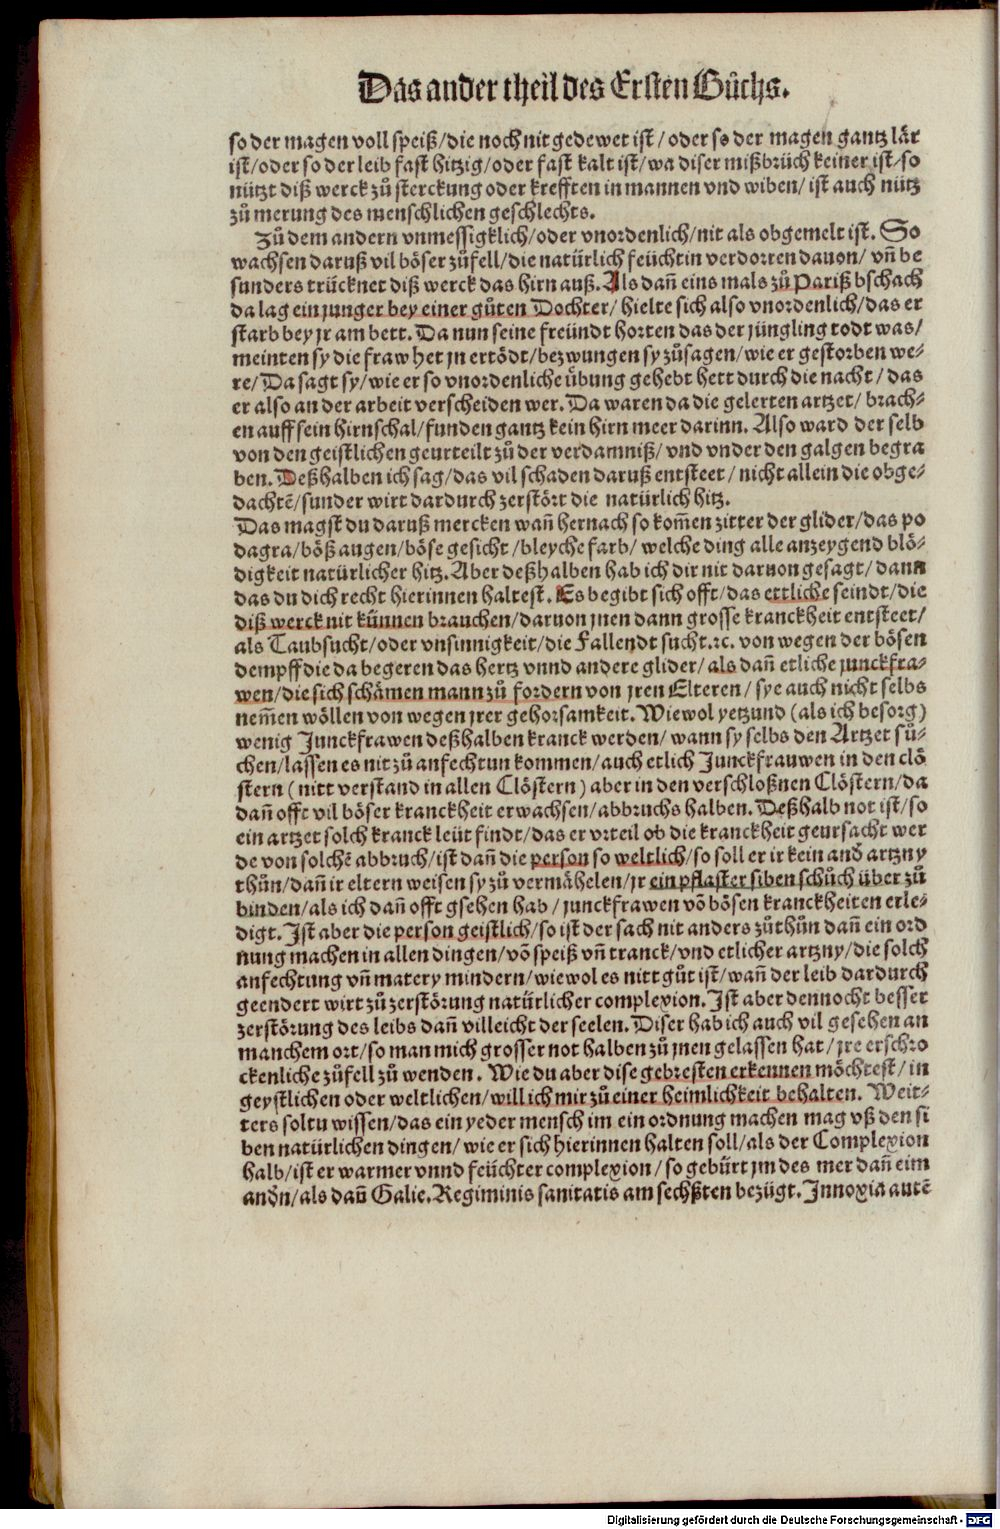 Das ander theil des Ersten Bůchs.
so der magen voll speiß/die noch nit gedewet ist/oder so der magen gantz lär
ist/oder so der leib fast hitzig/oder fast kalt ist/wa diser mißbrüch keiner ist/so
nützt diß werck zů sterckung oder krefften in mannen vnd wiben/ist auch nütz
zů merung des menschlichen geschlechts.
Zů dem andern vnmessigklich/oder vnordenlich/nit als obgemelt ist. So
wachsen daruß vil böser zůfell/die natürlich feüchtin verdorren dauon/vn̄ be
sunders trücknet diß werck das hirn auß. Als dan̄ eins mals zů Pariß bschach
da lag ein junger bey einer gůten Dochter/hielte sich also vnordenlich/das er
starb bey jr am bett. Da nun seine freündt horten das der jüngling todt was/
meinten sy die fraw het jn ertödt/bezwungen sy zůsagen/wie er gestorben we-
re/Da sagt sy/wie er so vnordenliche übung gehebt hett durch die nacht/das
er also an der arbeit verscheiden wer. Da waren da die gelerten artzet/brach-
en auff sein hirnschal/funden gantz kein hirn meer darinn. Also ward der selb
von den geistlichen geurteilt zů der verdamniß/vnd vnder den galgen begra
ben. Deßhalben ich sag/das vil schaden daruß entsteet/nicht allein die obge-
dachtē/sunder wirt dardurch zerstört die natürlich hitz.
Das magst du daruß mercken wan̄ hernach so kom̄en zitter der glider/das po
dagra/böß augen/böse gesicht/bleyche farb/welche ding alle anzeygend blö-
digkeit natürlicher hitz. Aber deßhalben hab ich dir nit daruon gesagt/dann
das du dich recht hierinnen haltest. Es begibt sich offt/das ettliche seindt/die
diß werck nit künnen brauchen/daruon jnen dann grosse kranckheit entsteet/
als Taubsucht/oder vnsinnigkeit/die Fallendt sucht.ꝛc. von wegen der bösen
dempff die da begeren das hertz vnnd andere glider/als dan̄ etliche junckfra-
wen/die sich schämen mann zů fordern von jren Elteren/sye auch nicht selbs
nem̄en wöllen von wegen jrer gehorsamkeit. Wiewol yetzund (als ich besorg)
wenig Junckfrawen deßhalben kranck werden/wann sy selbs den Artzet sů-
chen/lassen es nit zů anfechtun kommen/auch etlich Junckfrauwen in den clö
stern (nitt verstand in allen Clöstern) aber in den verschloßnen Clöstern/da
dan̄ offt vil böser kranckheit erwachsen/abbruchs halben. Deßhalb not ist/so
ein artzet solch kranck leüt findt/das er vrteil ob die kranckheit geursacht wer
de von solchē abbruch/ist dan̄ die person so weltlich/so soll er ir kein and̄ artzny
thůn/dan̄ ir eltern weisen sy zů vermähelen/jr ein pflaster siben schůch über zů
binden/als ich dan̄ offt gsehen hab/junckfrawen vō bösen kranckheiten erle-
digt. Ist aber die person geistlich/so ist der sach nit anders zůthůn dan̄ ein ord
nung machen in allen dingen/vō speiß vn̄ tranck/vnd etlicher artzny/die solch
anfechtung vn̄ matery mindern/wiewol es nitt gůt ist/wan̄ der leib dardurch
geendert wirt zů zerstörung natürlicher complexion. Ist aber dennocht besser
zerstörung des leibs dan̄ villeicht der seelen. Diser hab ich auch vil gesehen an
manchem ort/so man mich grosser not halben zů jnen gelassen hat/jre erschro
ckenliche zůfell zů wenden. Wie du aber dise gebresten erkennen möchtest/in
geystlichen oder weltlichen/will ich mir zů einer heimlichkeit behalten. Weit-
ters soltu wissen/das ein yeder mensch im ein ordnung machen mag vß den si
ben natürlichen dingen/wie er sich hierinnen halten soll/als der Complexion
halb/ist er warmer vnnd feüchter complexion/so gebürt jm des mer dan̄ eim
and̄n/als dan̄ Galie. Regiminis sanitatis am sechßten bezügt. Innoxia autē
Digitalisierung gefördert durch die Deutsche Forschungsgemeinschaft - DFG